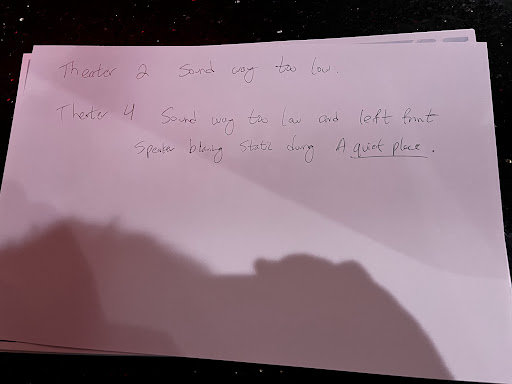 Theater 2 Sound way too low.
Theater 4 Sound way too low and left front
Speaker blaring static during A quiet place.